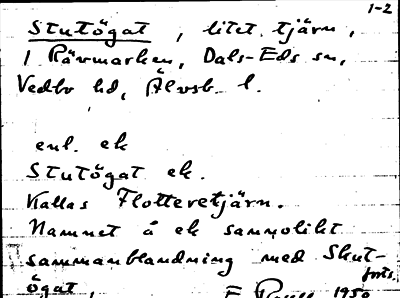 1-2
Stutögat, litet tjärn,
i Rävmarken, Dals-Eds sn,
Vedbo hd, Älvsb. l.
enl. ek
Stutögat ek.
Kallas Flottervetjärn.
Namnet å ek sannolikt
sammanblandning med Skut-
forts.
ögat,
E 1950